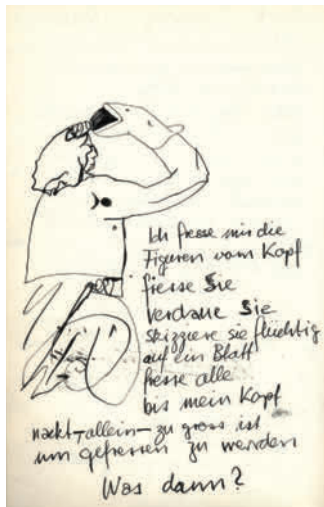 Ich fresse mir die
Figuren vom Kopf
fresse Sie
verdaue Sie
skizziere sie flüchtig
auf ein Blatt
fresse alle
bis mein Kopf
nackt-allein-zu gross ist
um gefressen zu werden
Was dann?